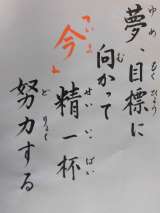 ゆめ もくひょう
夢、目標に
む
向かって
いま せい いっ ぱい
「今」精一杯
ど りょく
努力する